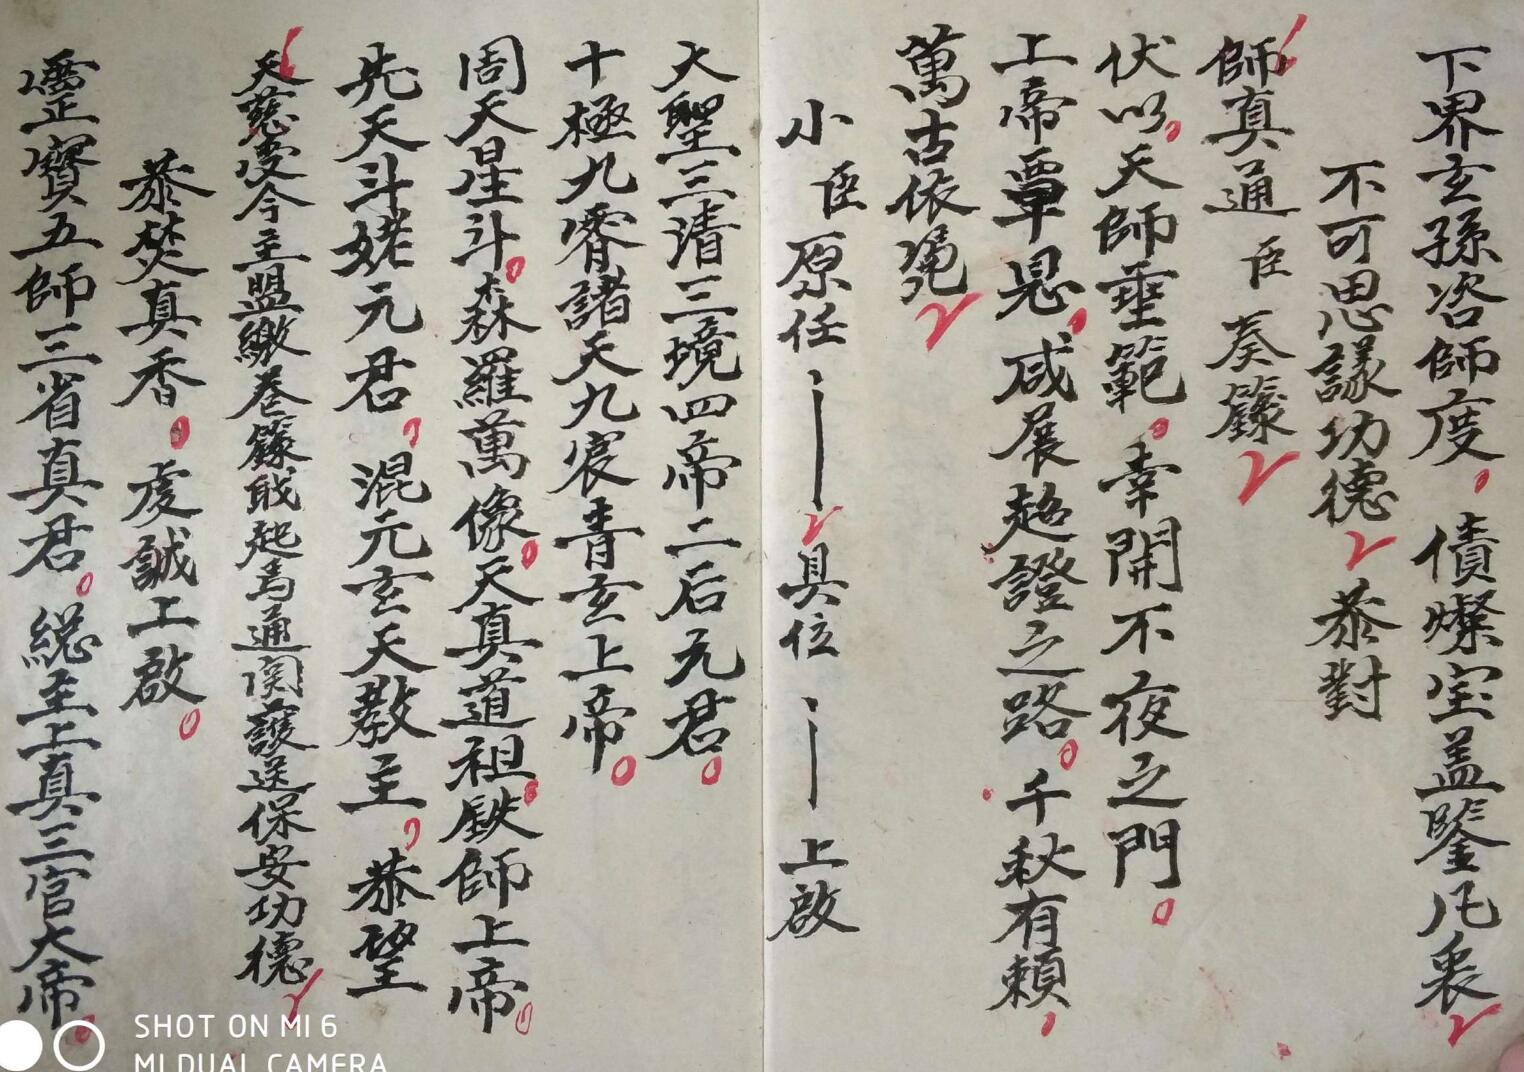 下界玄孫咨師度債燦宝盖鑒凡衷
不可思議功德恭對
師真通臣奏籙
伏以天師垂範幸開不夜之門
上帝覃恩咸展超證之路千秋有賴
萬古依
小臣原任具位上啟
大聖三清三境四帝二后元君
十極九霄諸天九宸青玄上帝
周天星斗森羅萬像天真道祖鉄師上帝
先天斗姥元君混元玄天教主恭望
天慈慶今主盟繳卷籙起馬通関護送保安功德
恭焚真香虔誠上啟
靈寶五師三省真君総主上真三官大帝
SHOT ON MI 6
MI DUAL CAMERA